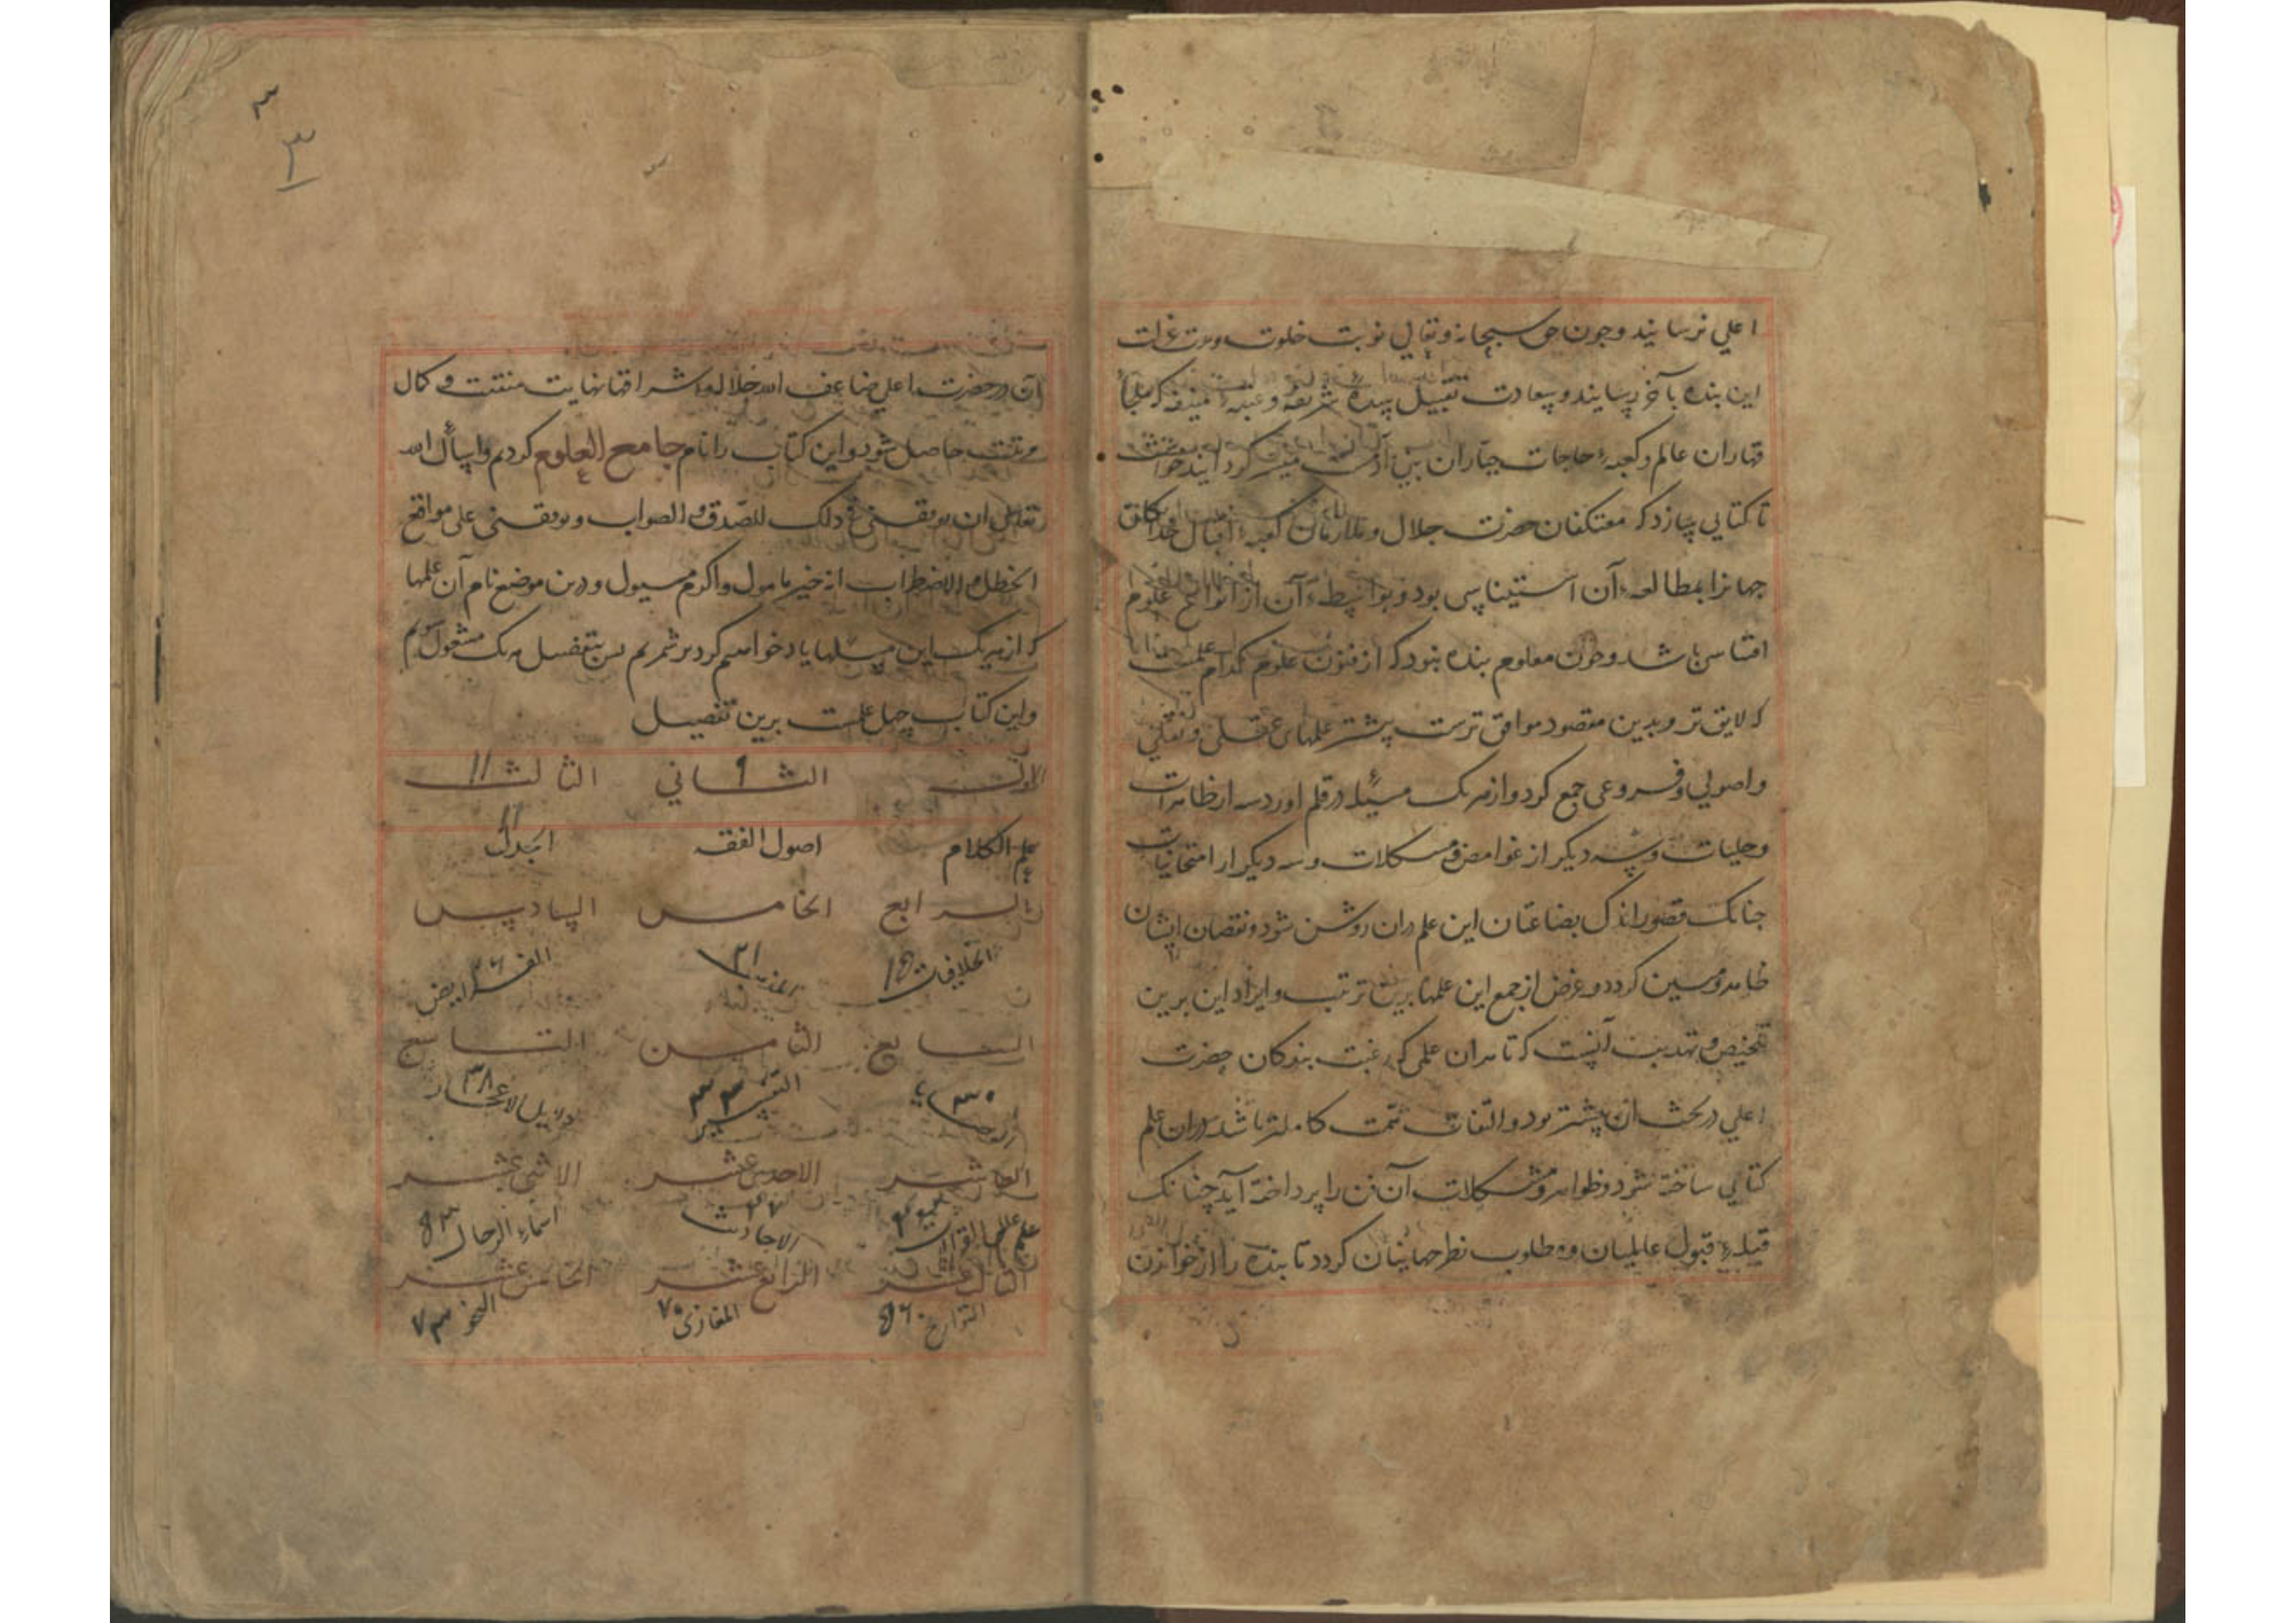 اعلی نرسانیدند و چون حق سبحانه و تعالی نوبت خلوت و مدت
این بنده بآخر رسانید و بسعادت تقبیل سده شریفه و عتبه منیفه که ملجأ
قهاران عالم و کعبه حاجات جباران بنی آدمست میسر گردانید خواست
تا کتابی بسازد که معتکفان حضرت جلال و ملازمان کعبه اقبال خداوند
جهانرا بمطالعه آن استیناسی بود و بواسطه آن از انواع علوم
اقتباس باشد و چون معلوم بنده نبود که از فنون علوم کدام علمست
که لایق تر و بدین مقصود موافق ترست پیشتر علمهای عقلی و نقلی
و اصولی و فروعی جمع کرد و از هر یک مسئله در قلم اورد سه از ظاهرات
و جلیات و سه دیگر از غوامض و مشکلات و سه دیگر از امتحانیات
چنانک قصور اندک بضاعتان این علم دران روشن شود و نقصان ایشان
ظاهر و مبین گردد و غرض از جمع این علمها برین ترتیب و ایراد این برین
تلخیص و تهذیب آنست که تا هران علمی که رغبت بندگان حضرت
اعلی در بحث ان پیشتر بود و التفات همت کاملتر باشد دران علم
کتابی ساخته شود و ظواهر و مشکلات آن فن را پرداخته آید چنانک
قبله قبول عالمیان و مطلوب نظر جهانیان گردد تا بنده را از خواندن
۳
۳
آن در حضرت اعلی ضاعف الله جلالها و اشراقها نهایت منقبت و کمال
مرتبت حاصل شود و این کتاب را نام جامع العلوم کردم و اسأل الله
تعالی ان یوفقنی فی ذلک للصدق و الصواب و یوقفنی علی مواقع
الخطل و الاضطراب انه خیر مامول و اکرم مسیول و درین موضع نام آن علمها
که از هر یک این مسلها یاد خواهیم کرد بر شمریم پس بتفصیل هر یک مشغول شویم
و این کتاب چهل علمست برین تفصیل
الاول الثانی ۹ الثالث ۱۱
علم الکلام اصول الفقه الجدل ۱۱
الرابع الخامس السادس
الخلافیات ۱۵ المذهب ۲۱ الفرایض ۲۶
السابع الثامن التاسع
الوصایا ۳۰ التفسیر ۳۳ دلایل الاعجاز ۳۸
العاشر الاحدی عشر الاثنی عشر
علم القران الاحادیث ۴۷ اسماء الرجال ۵۳
الثالث عشر الرابع عشر الخامس عشر
التواریخ ۵۶ المغازی ۷۰ النحو ۷۳